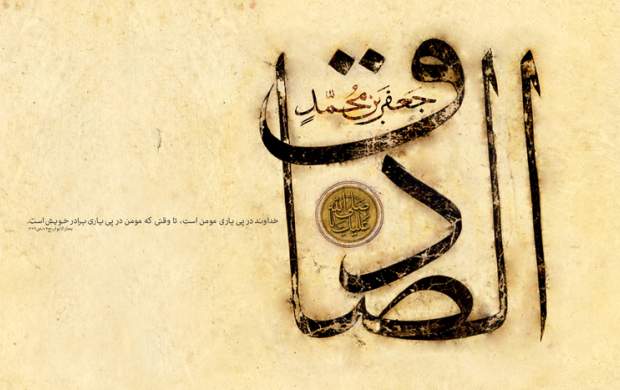 جَعفَر بن مُحَمَّدٍ
الصادق
صلی الله علیک
خداوند در پی یاری مومن است، تا وقتی که مومن در پی یاری برادر خویش است.